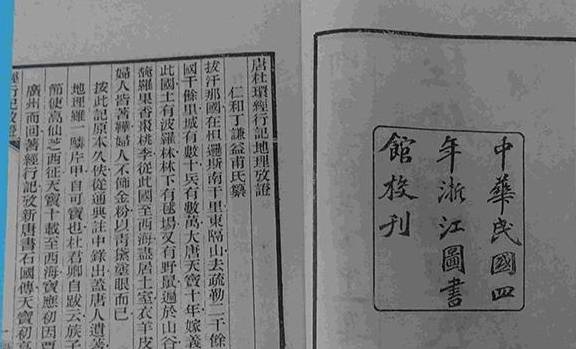 中華民國四
年浙江圖書
館校刊
唐杜環經行記地理攷證
仁和丁謙益甫氏纂
拔汗那國在怛邏斯南千里東隔山去疏勒二千餘
國千餘里城有數十兵有數萬大唐天寶十年嫁義
此國土有波羅林林下有毬場又有野鼠遍於山谷
菴羅果香棗桃李從此國至西海盡居土室衣羊皮
婦人皆著鞾婦人不飾金粉以青黛塗眼而已
按此記原本久佚從通典註中錄出蓋唐人遺著
地理雖一鱗片甲自可寶也杜君卿自跋云族子
節使高仙芝西征天寶十載至西海寶應初因賈
廣州而回著經行記攷新唐書石國傳天寶初高
經行記攷證